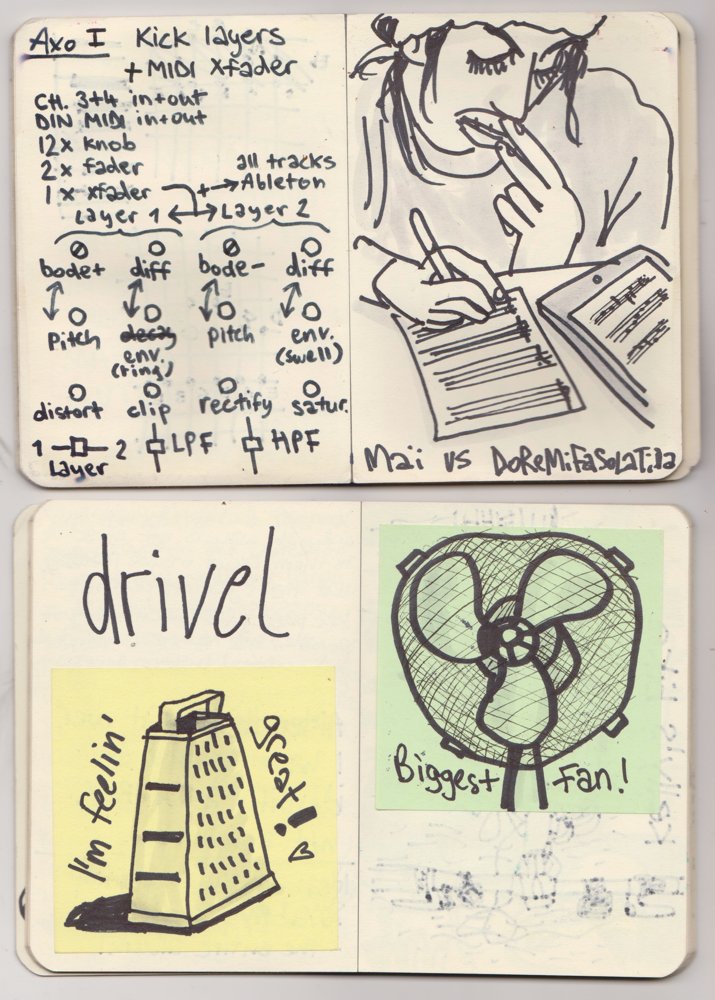 Axo I Kick layers
+ MIDI Xfader
CH. 3+4 in+out
DIN MIDI in+out
12x knob
2x fader
1x xfader
all tracks
+→ Ableton
Layer 1 ↔ Layer 2
bode+ diff bode- diff
Pitch decay pitch env.
env. (swell)
(ring)
distort clip rectify satur.
1 2 LPF HPF
Layer
Maï vs DoReMiFaSoLaTiDa
drivel
I'm feelin'
great!
Biggest Fan!